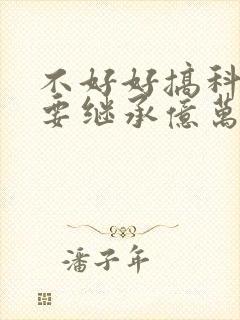 不好好搞科
要继承億萬
潘子年